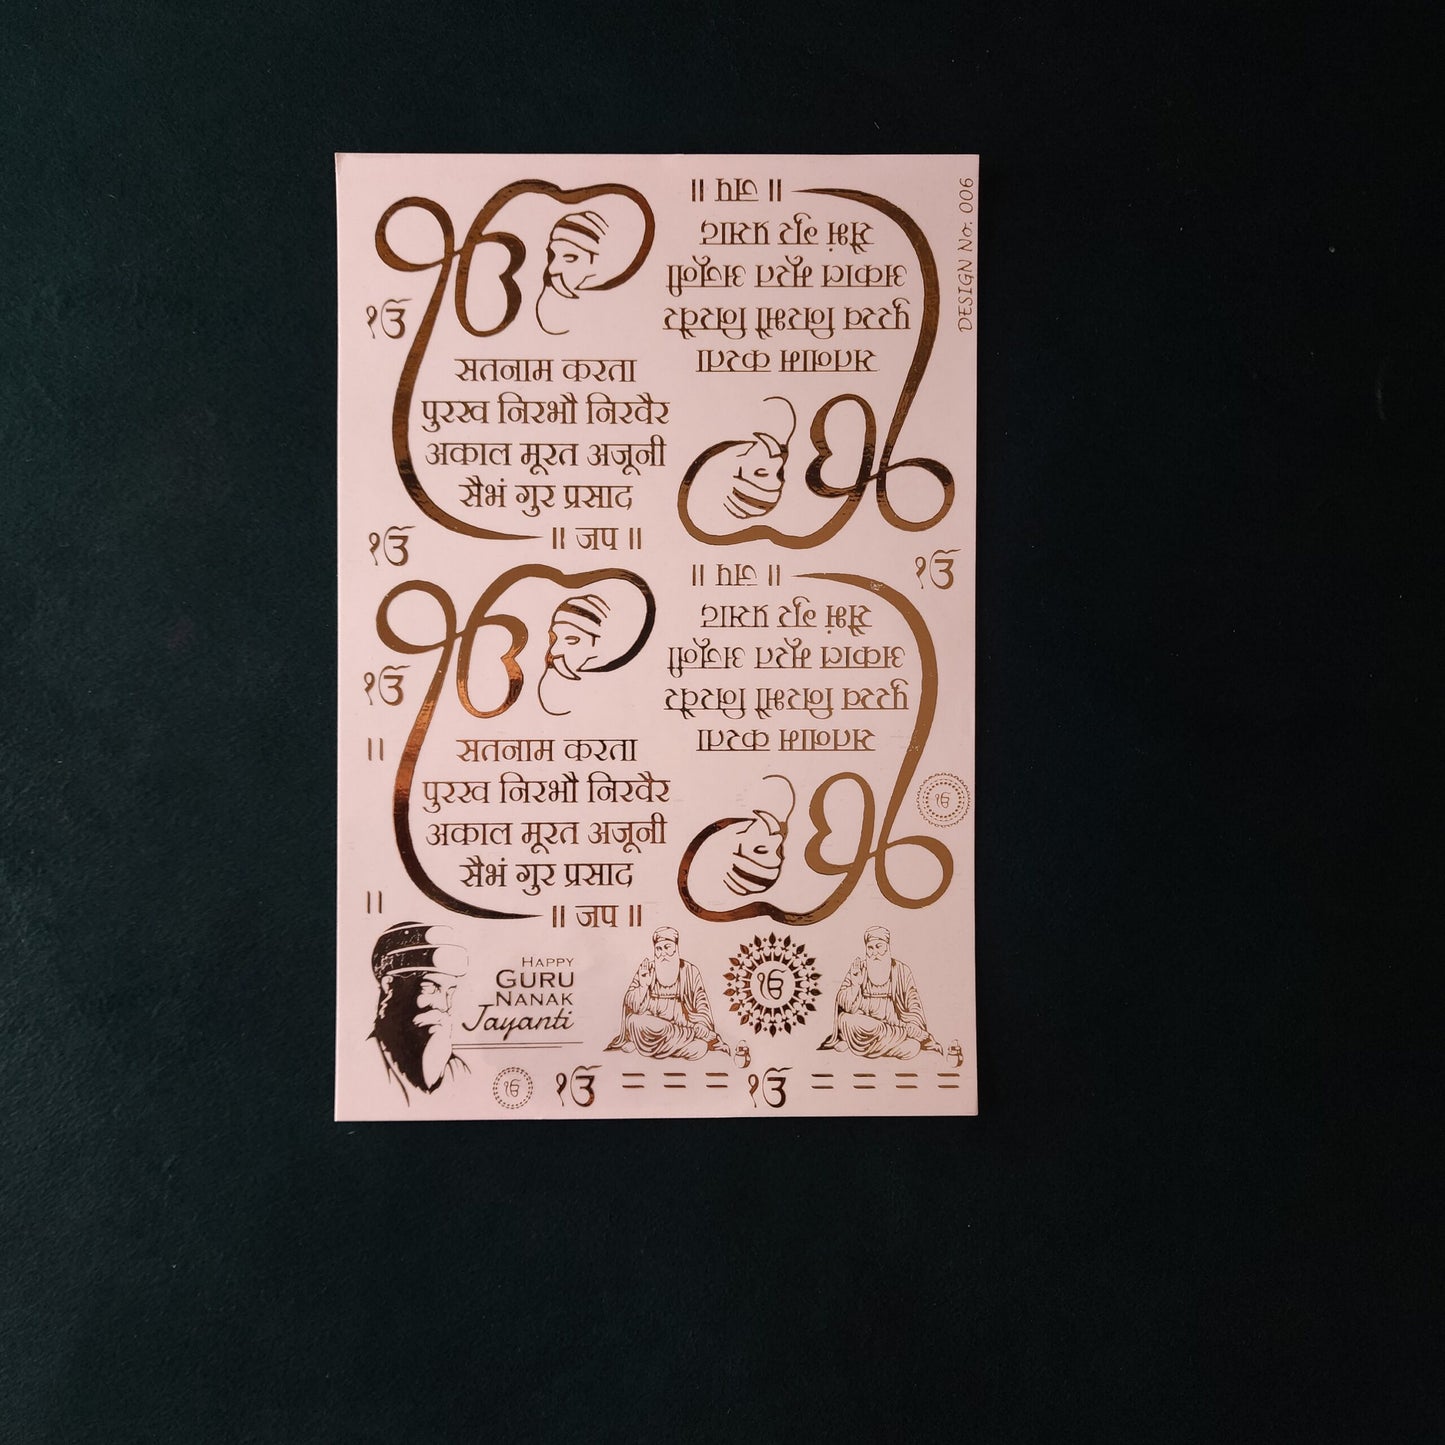 ੴ
१ॐ
सतनाम करता
पुरख निरभौ निरवैर
अकाल मूरत अजूनी
सैभं गुर प्रसाद
॥ जप ॥
१ॐ
॥ जप ॥
सैभं गुर प्रसाद
अकाल मूरत अजूनी
पुरख निरभौ निरवैर
सतनाम करता
ੴ
DESIGN No. 006
१ॐ
ੴ
१ॐ
॥
सतनाम करता
पुरख निरभौ निरवैर
अकाल मूरत अजूनी
सैभं गुर प्रसाद
॥ जप ॥
॥
॥ जप ॥
सैभं गुर प्रसाद
अकाल मूरत अजूनी
पुरख निरभौ निरवैर
सतनाम करता
ੴ
ੴ
HAPPY
GURU
NANAK
Jayanti
ੴ
ੴ
१ॐ
१ॐ